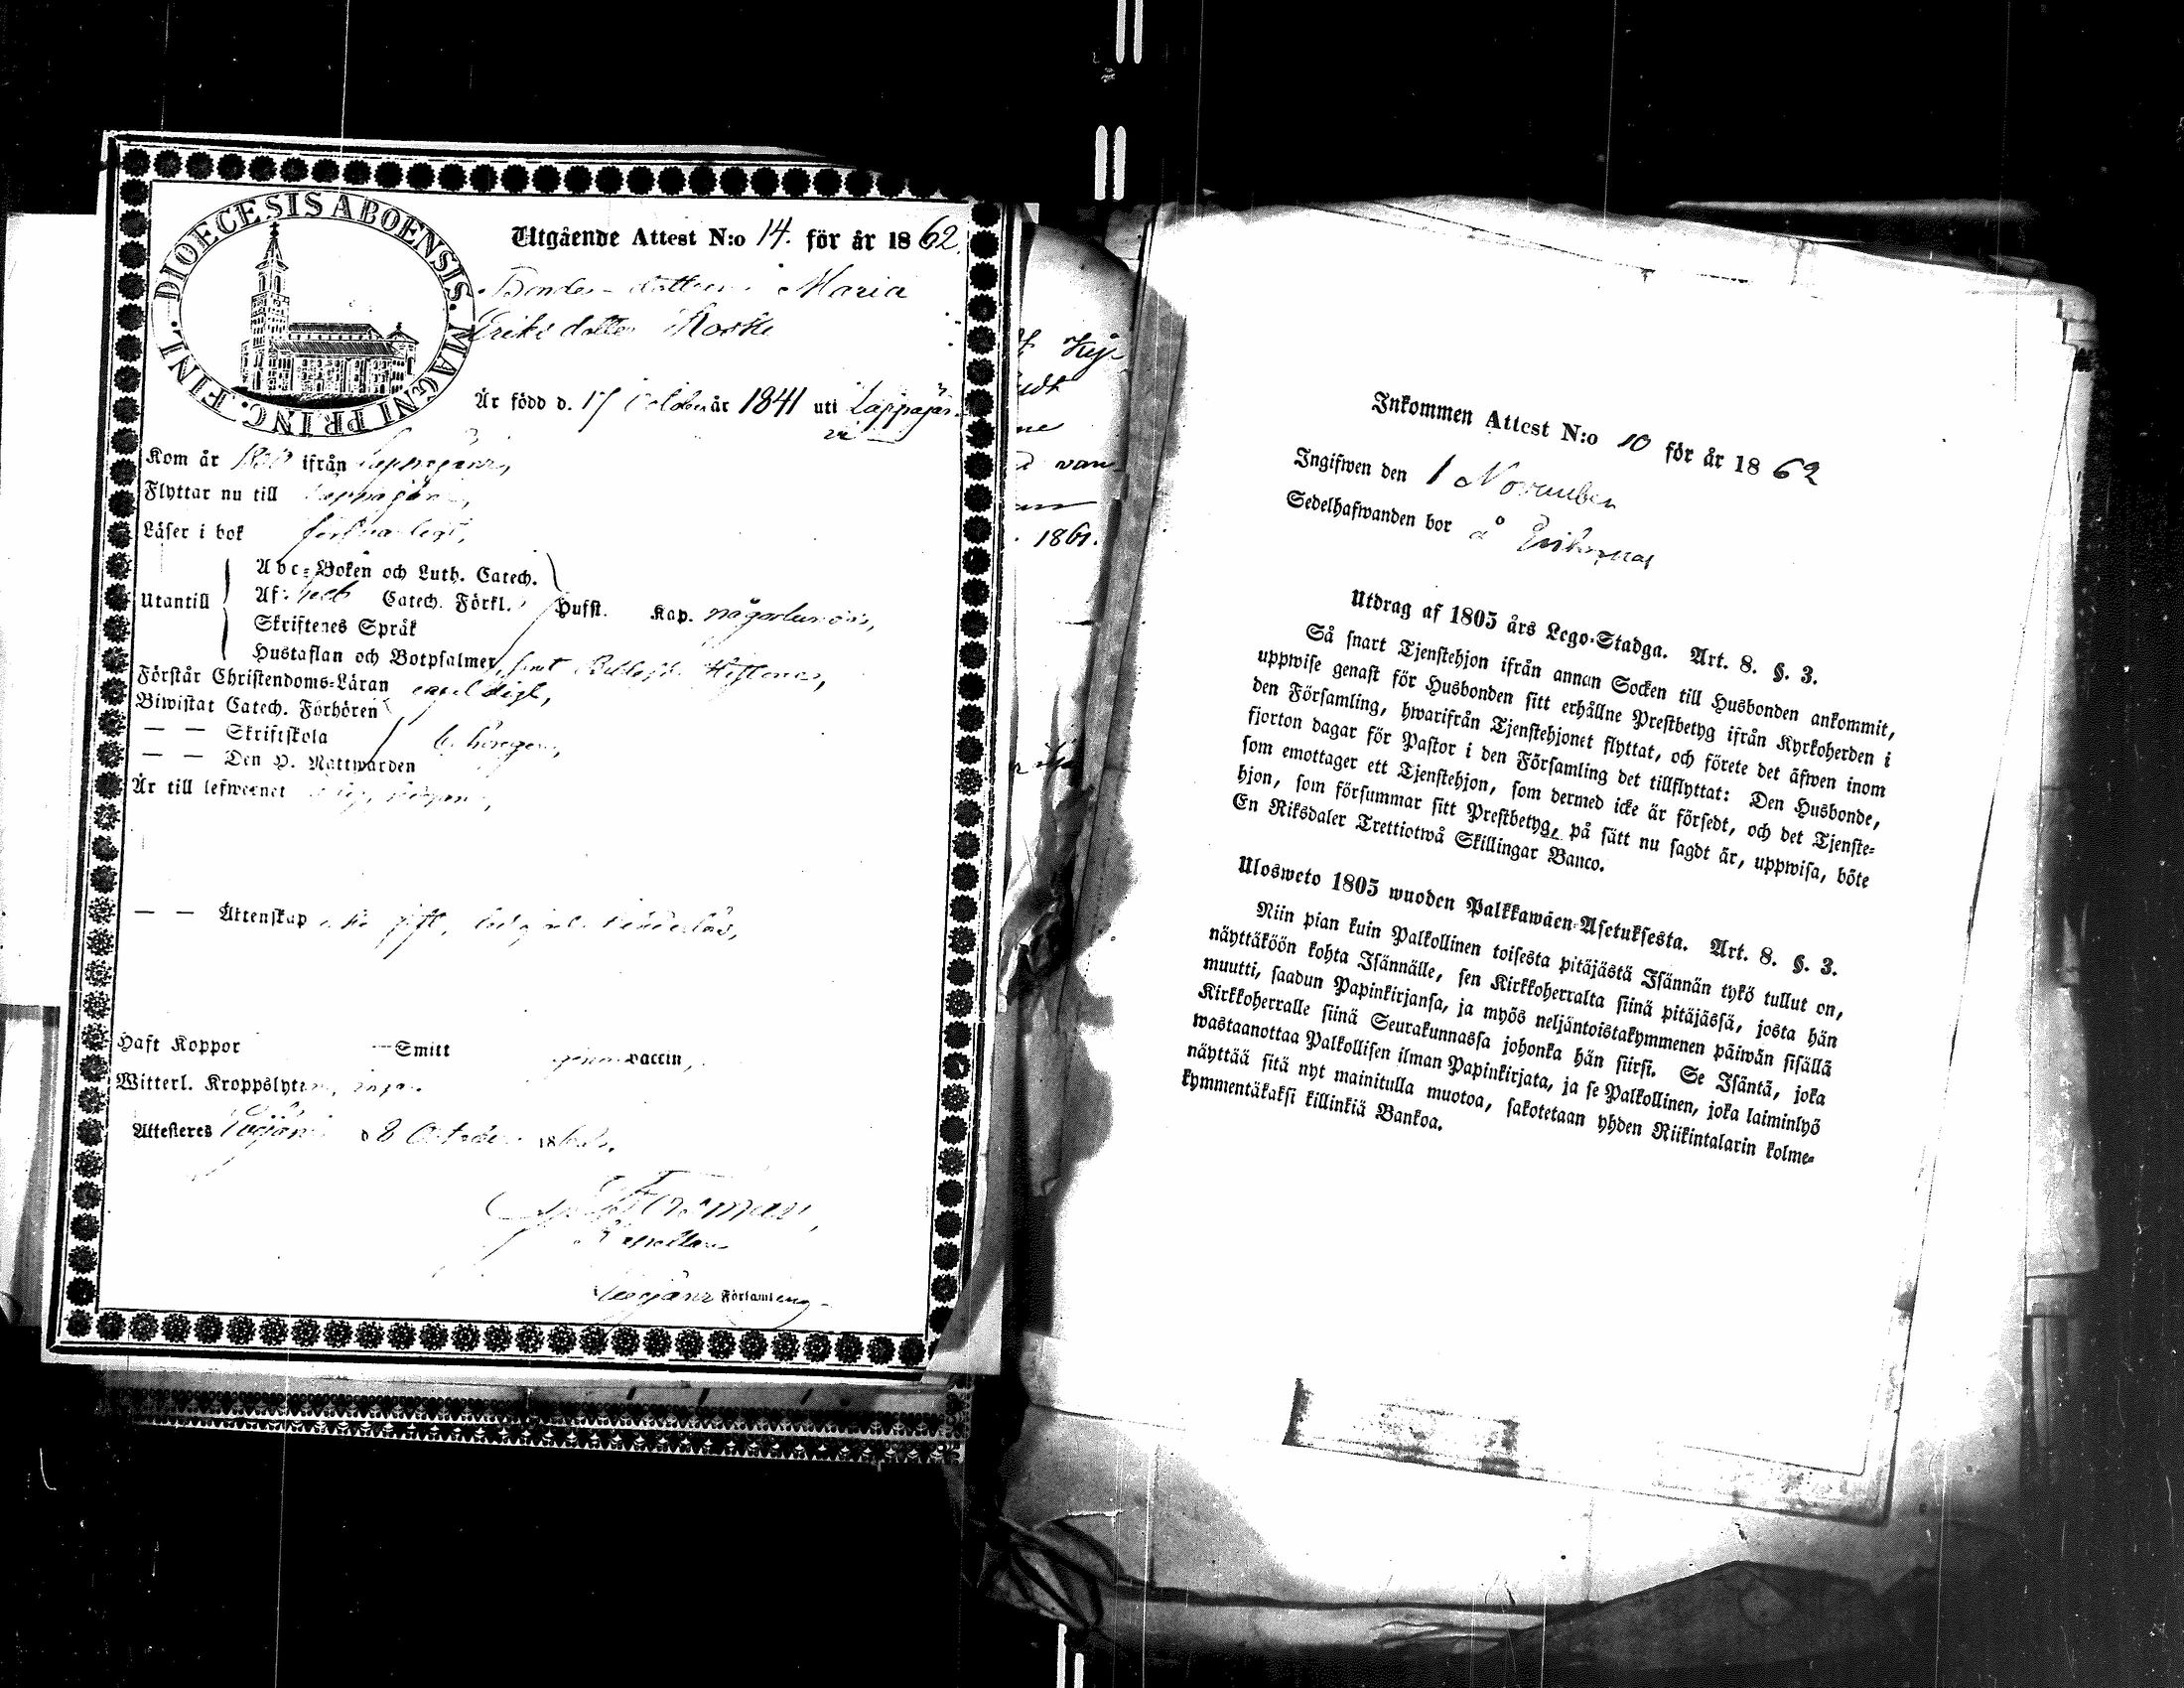 DIOECESIS ABOENSIS. MAGNI PRINC. FINL.
Utgående Attest N:o 14. för år 1862.
Bonde-dottren Maria
Eriksdotter Koski
Är född d. 17 October år 1841 uti Lappajär-
vi
Kom år ifrån Lappajärvi,
Flyttar nu till Lappajärvi,
Läser i bok försvarligt,
Utantill
Abc-Boken och Luth. Catech.
Af Catech. Förkl. Hufst. Kap. någorlunda,
Skriftenes Språk
Hustaflan och Botpsalmer, samt Historier,
Förstår Christendoms-Läran
Biwistat Catech. Förhören
— — Skriftskola
— — Den H. Nattwarden
Är till lefwernet
— — Ättenskap
Haft Koppor — Smitt vaccin,
Witterl. Kroppslyten, inga.
Attesteres Evijärvi d 8 October 1862.
Kapellan
Evijärvi Församling
1861.
Inkommen Attest N:o 10 för år 1862
Ingifwen den 1 November
Sedelhafwanden bor å
Utdrag af 1805 års Lego-Stadga. Art. 8. §. 3.
Så snart Tjenstehjon ifrån annan Socken till Husbonden ankommit,
uppwise genast för Husbonden sitt erhållne Prestbetyg ifrån Kyrkoherden i
den Församling, hwarifrån Tjenstehjonet flyttat, och förete det äfwen inom
fjorton dagar för Pastor i den Församling det tillflyttat: Den Husbonde,
som emottager ett Tjenstehjon, som dermed icke är försedt, och det Tjenste-
hjon, som försummar sitt Prestbetyg, på sätt nu sagdt är, uppwisa, böte
En Riksdaler Trettiotwå Skillingar Banco.
Ulosweto 1805 wuoden Palkkawäen-Asetuksesta. Art. 8. §. 3.
Niin pian kuin Palkollinen toisesta pitäjästä Isännän tykö tullut on,
näyttäköön kohta Isännälle, sen Kirkkoherralta siinä pitäjässä, josta hän
muutti, saadun Papinkirjansa, ja myös neljäntoistakymmenen päiwän sisällä
Kirkkoherralle siinä Seurakunnassa johonka hän siirsi. Se Isäntä, joka
wastaanottaa Palkollisen ilman Papinkirjata, ja se Palkollinen, joka laiminlyö
näyttää sitä nyt mainitulla muotoa, sakotetaan yhden Riikintalarin kolme-
kymmentäkaksi killinkiä Bankoa.